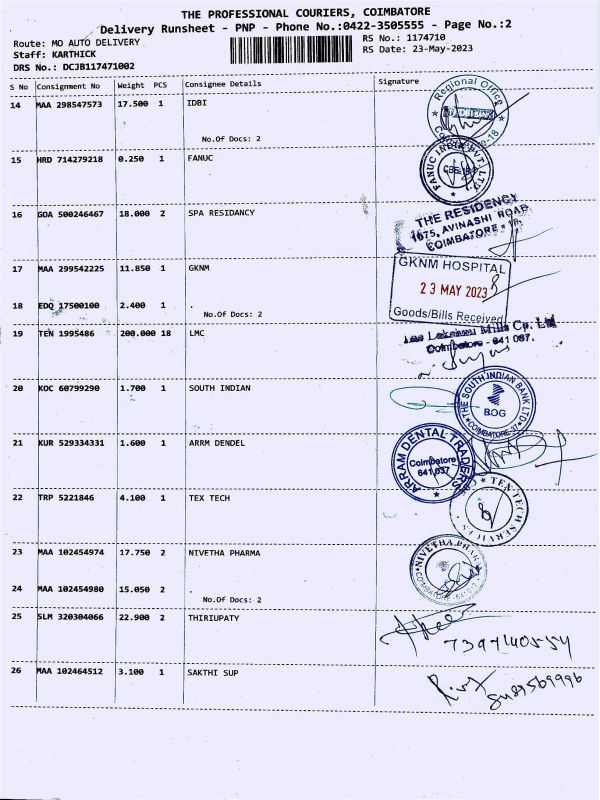 THE PROFESSIONAL COURIERS, COIMBATORE
Delivery Runsheet - PNP - Phone No.:0422-3505555 - Page No.:2
Route: MO AUTO DELIVERY
RS No.: 1174710
Staff: KARTHICK
RS Date: 23-May-2023
DRS No.: DCJB117471002
S No Consignment No Weight PCS Consignee Details Signature
14 MAA 298547573 17.500 1 IDBI
Regional Office
No.Of Docs: 2
15 HRD 714279218 0.250 1 FANUC
FANUC INDIA PVT. LTD.
16 GOA 500246467 18.000 2 SPA RESIDANCY
THE RESIDENCY
1075, AVINASHI ROAD
COIMBATORE - 18.
17 MAA 299542225 11.850 1 GKNM
GKNM HOSPITAL
23 MAY 2023
Goods/Bills Received
18 EDQ 17500100 2.400 1 .
No.Of Docs: 2
19 TEN 1995486 200.000 18 LMC
Mills Co. Ltd
Coimbatore - 641 037.
20 KOC 60799290 1.700 1 SOUTH INDIAN
THE SOUTH INDIAN BANK LTD
BOG
COIMBATORE-37
21 KUR 529334331 1.600 1 ARRM DENDEL
ARRAM DENTAL TRADERS
Coimbatore
641 037
22 TRP 5221846 4.100 1 TEX TECH
TEX TECH SERVICES
23 MAA 102454974 17.750 2 NIVETHA PHARMA
NIVETHA PHARMA
24 MAA 102454980 15.050 2 .
No.Of Docs: 2
25 SLM 320304066 22.900 2 THIRIUPATY
7397140554
26 MAA 102464512 3.100 1 SAKTHI SUP